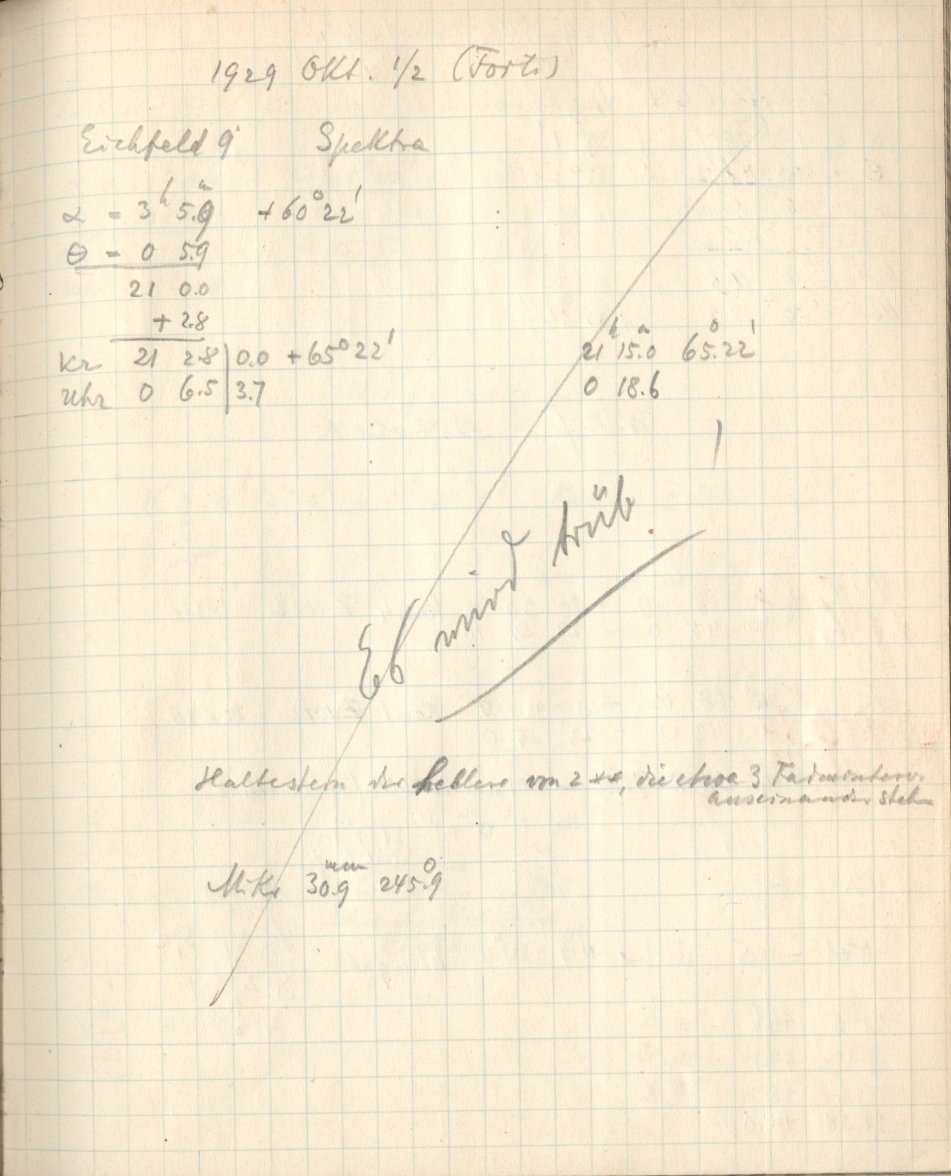 1929 Okt. 1/2 (Forts.)
Eichfeld 9 Spektra
α = 3ʰ 5.9ᵐ +60° 22'
θ = 0 5.9
21 0.0
+ 2.8
Kr 21 2.8 | 0.0 +65° 22' 21ʰ 15.0ᵐ 65°.22'
Uhr 0 6.5 | 3.7 0 18.6
Es wird trüb!
Haltestern der hellere von 2 **, die etwa 3 Fadeninterv.
auseinander stehn
Mikr 30.9ᵐᵐ 245.9°